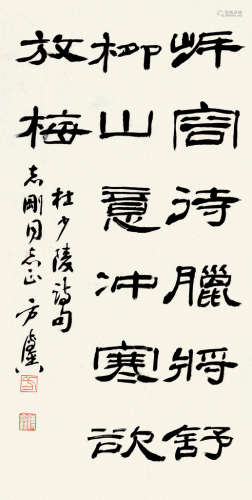 岸容待臘將舒
柳山意冲寒欲
放梅
杜少陵詩句
志剛同志正 方